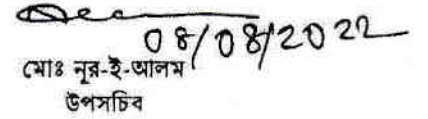 08/08/2022
মোঃ নূর-ই-আলম
উপসচিব